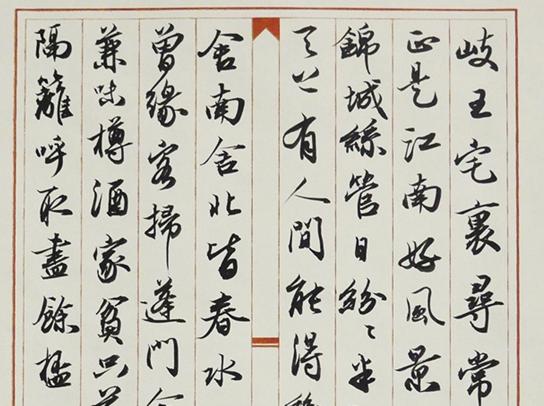 岐王宅裏尋常
正是江南好風景
錦城絲管日紛〻半
天上有人間能得
舍南舍北皆春水
曾緣客掃蓬門今
兼味樽酒家貧只舊
隔籬呼取盡餘